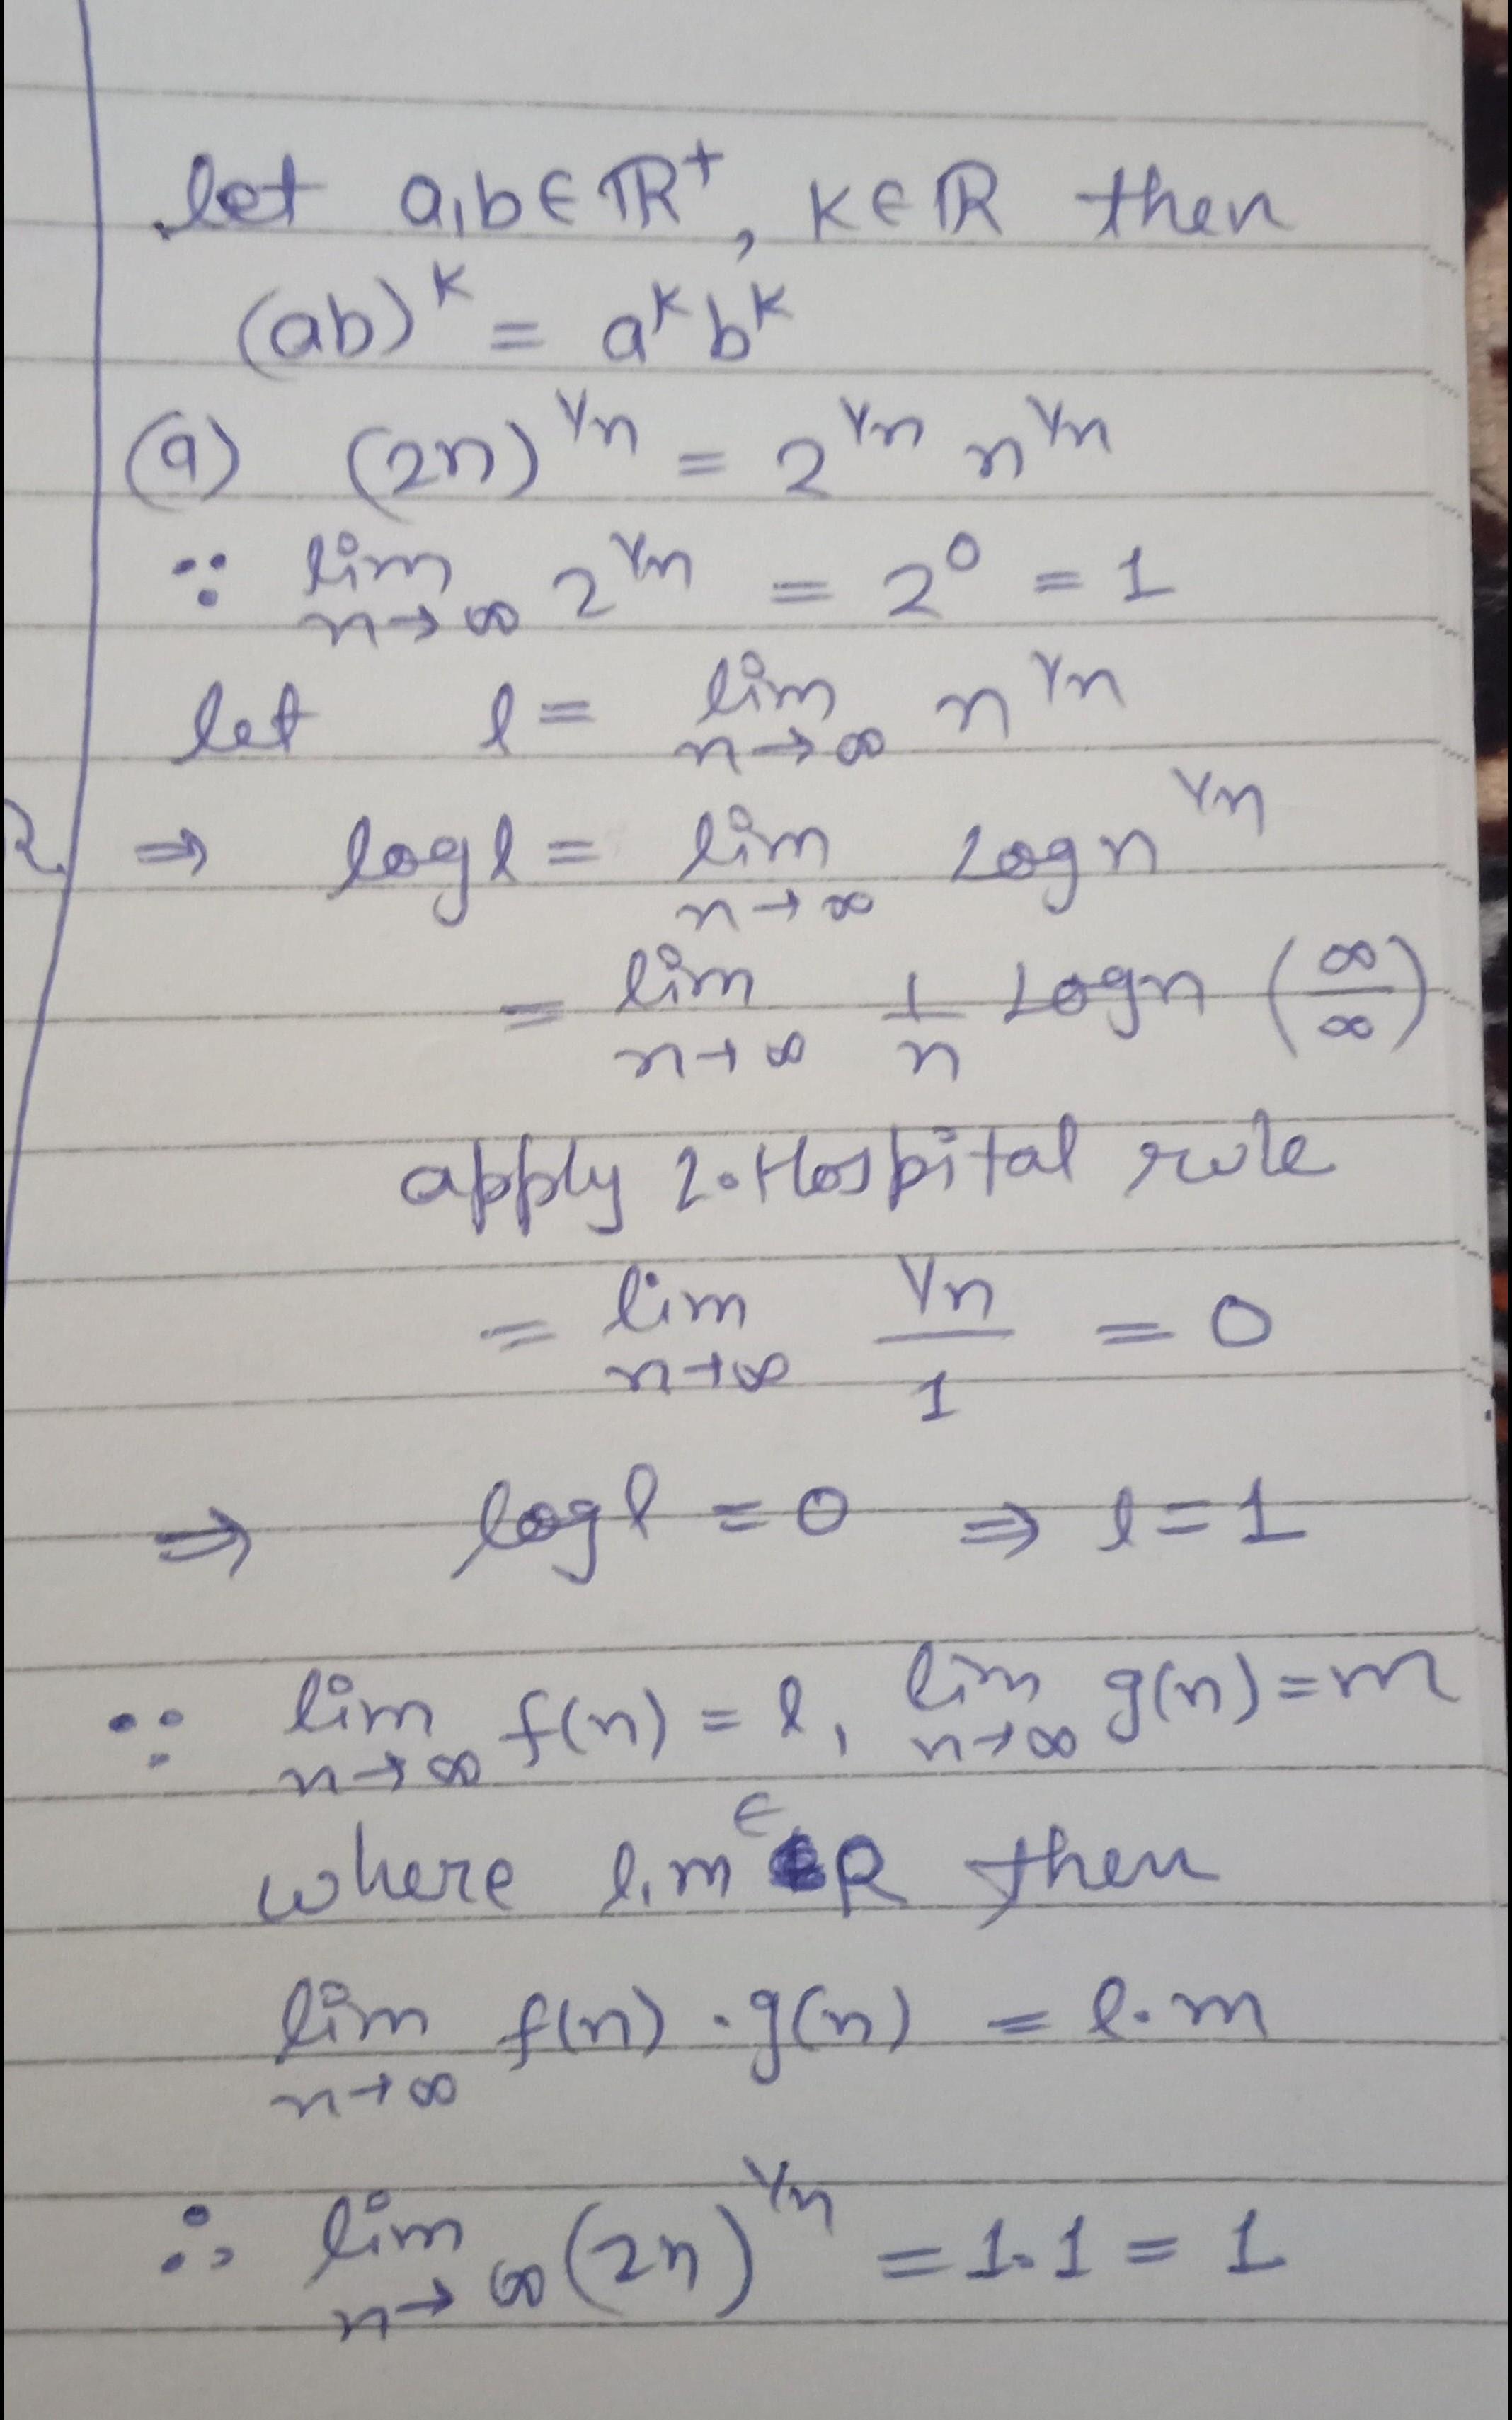 let a,b∈ℝ⁺, K∈ℝ then
(ab)^K = a^K b^K
(a) (2n)^1/n = 2^1/n n^1/n
∵ lim n→∞ 2^1/n = 2^0 = 1
let l = lim n→∞ n^1/n
⇒ log l = lim n→∞ Log n^1/n
= lim n→∞ 1/n Log n (∞/∞)
apply L.Hospital rule
= lim n→∞ (1/n)/1 = 0
⇒ log l = 0 ⇒ l = 1
∵ lim n→∞ f(n) = l, lim n→∞ g(n) = m
where l,m ∈ R then
lim n→∞ f(n) · g(n) = l·m
∴ lim n→∞ (2n)^1/n = 1·1 = 1